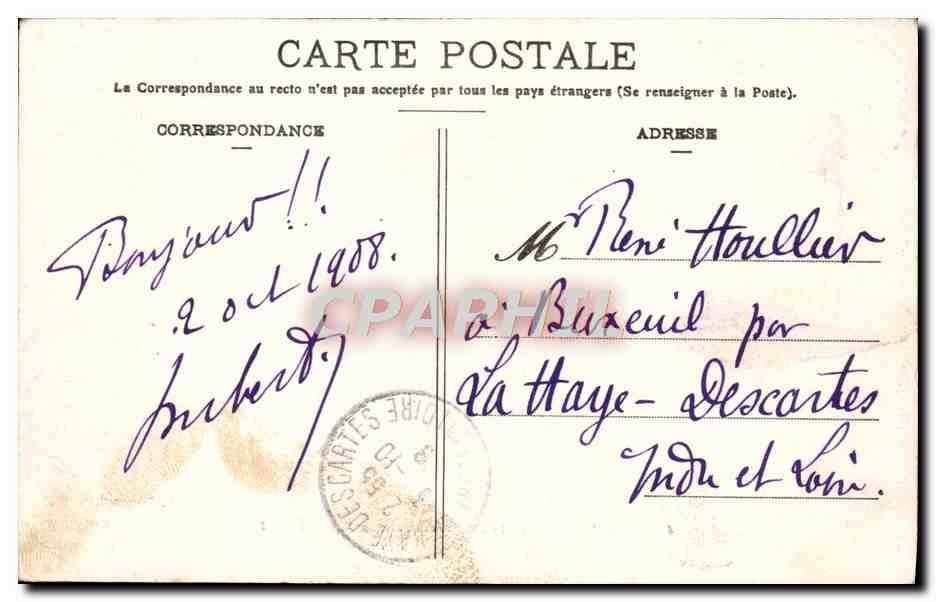 CARTE POSTALE
La Correspondance au recto n'est pas acceptée par tous les pays étrangers (Se renseigner à la Poste).
CORRESPONDANCE
Bonjour!!
2 oct 1908.
ADRESSE
Mr René Houllier
à Buxeuil par
La Haye-Descartes
Indre et Loire.
CPAPHIL
HAYE-DESCARTES
LOIRE